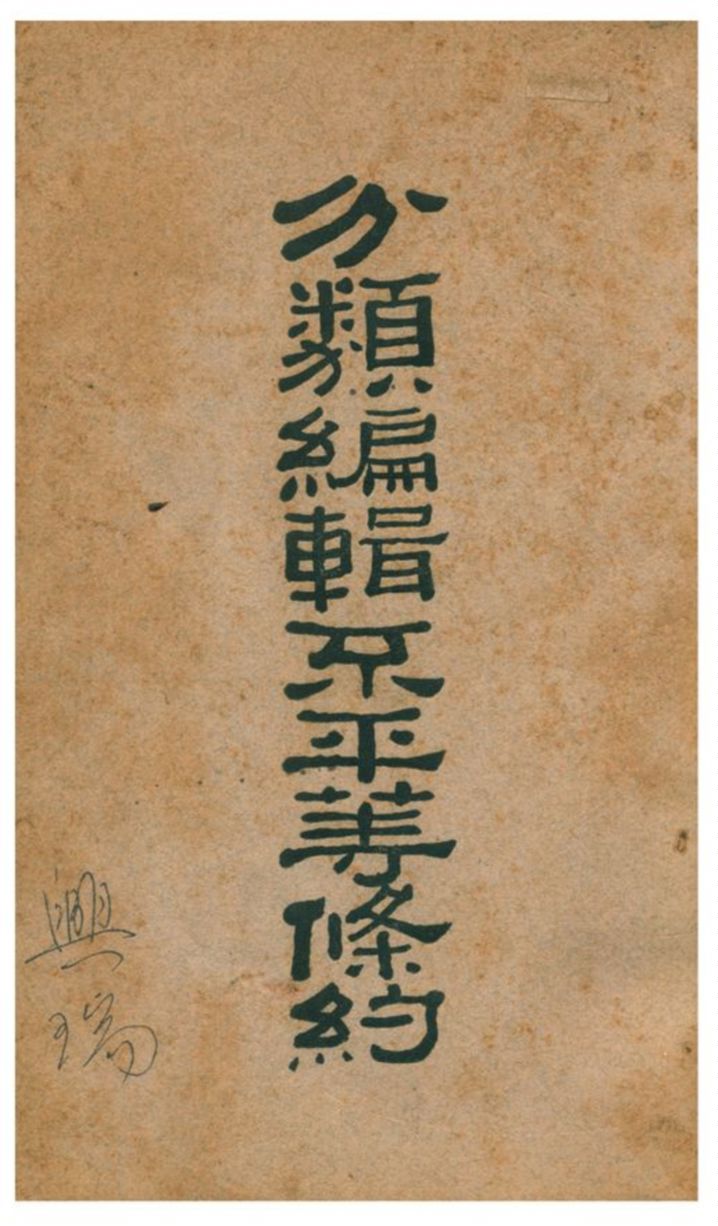 分類編輯不平等條約
興瑞